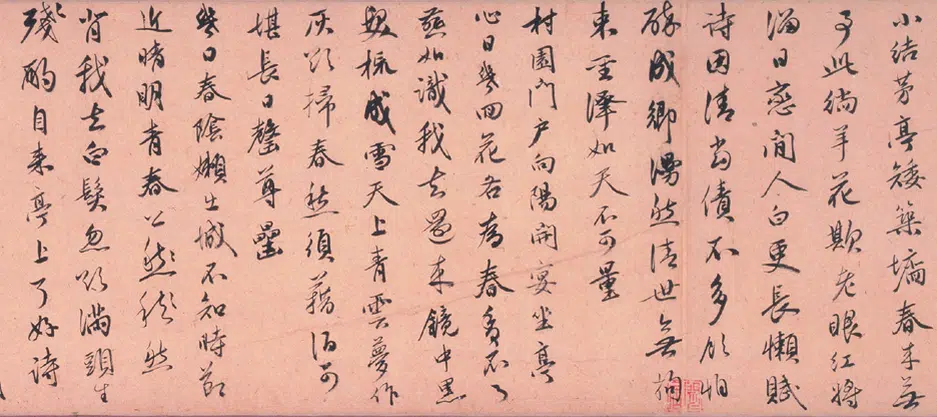 小結茅亭矮築墻春来無
事此徜羊花欺老眼紅將
溜日戀閒人白更長懶賦
詩因清當債不多飲怕
醉成鄉漫然清世無拘
束聖澤如天不可量
村園門戶向陽開宴坐亭
心日幾回花若為春多不了
燕如識我去還来鏡中黑
髮梳成雪天上青雲夢作
灰欲掃春愁須藉酒可
堪長日罄尊罍
幾日春陰嬾出城不知時節
近晴明青春公然然
背我去白髮忽欲滿頭生
殘酌自来亭上了好詩